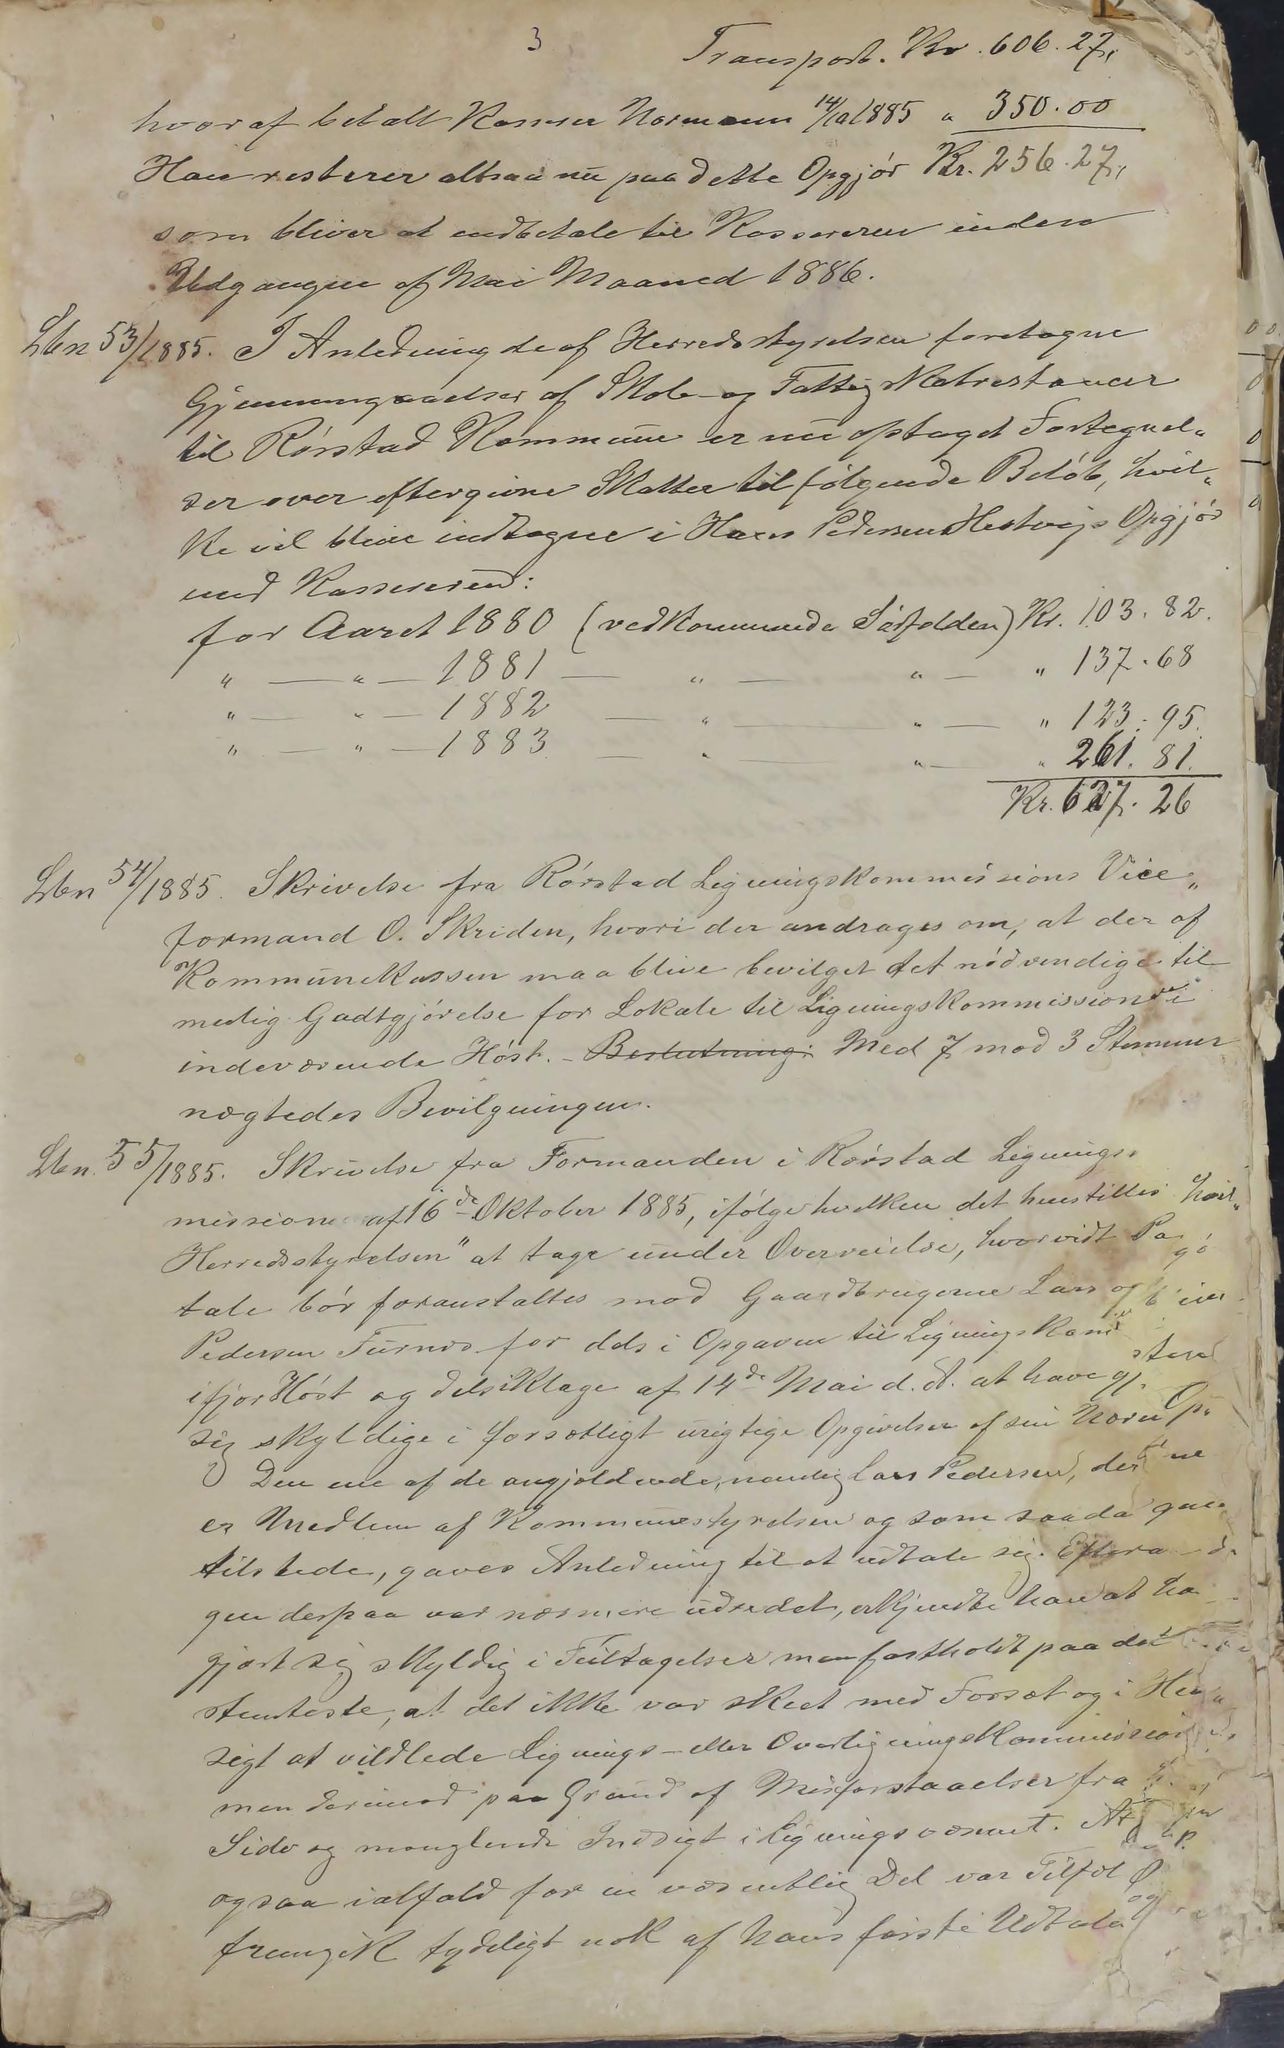 3
Transport. Kr. 606.27,
hvoraf betalt Kasser Normann 14/10 1885 " 350.00
Han resterer altsaa nu paa dette Opgjør Kr. 256.27,
som bliver at indbetale til Kassereren inden
Udgangen af Mai Maaned 1886.
Lbn 53/1885. I Anledning de af Herredsstyrelsen foretagne
Gjennemgaaelser af Skole- og Fattigskatrestancer
til Rørstad Kommune er nu optaget Fortegnel„
ser over eftergivne Skatter til følgende Beløb, hvil„
ke vil blive indtagne i Hans Pedersen Hestvigs Opgjør
med Kassereren:
for Aaret 1880 (vedkommende Sørfolden) Kr. 103.82.
" — " — 1881 — " — " — " 137.68
" — " — 1882 — " — " — " 123.95.
" — " — 1883 — " — " — " 261.81.
Kr. 627.26
Lbn 54/1885. Skrivelse fra Rørstad Ligningskommissions Vice„
formand O. Skriden, hvori der andrages om, at der af
Kommunekassen maa blive bevilget det nødvendige til
medig Godtgjørelse for Lokale til Ligningskommissionen i
indeværende Høst. - Beslutning: Med 7 mod 3 Stemmer
nægtedes Bevilgningen.
Lbn. 55/1885. Skrivelse fra Formanden i Rørstad Lignings
missione af 16de Oktober 1885, ifølge hvilken det henstilles
Herredsstyrelsen" at tage under Overveielse, hvorvidt Pa
tale bør foranstaltes mod Gaardbrugerne Lars og
Pedersen Furnes for dels i Opgaven til Ligningskom
ifjor Høst og dels i Klage af 14de Mai d. A. at have gj
sig skyldige i forsætligt urigtige Opgivelser af sin Næring
Den ene af de angjældende, nemlig Lars Pedersen, der
er Medlem af Kommunestyrelsen og som saada
tilstede, gaves Anledning til at udtale sig. Efter
gen derpaa var nærmere udredet, erkjendte han at ha
gjort sig skyldig i Feiltagelser men fastholdt paa det
stemteste, at det ikke var skeet med Forsæt og i Hen
sigt at vildlede Lignings- eller Overligningskommission
men derimod paa Grund af Misforstaaelser fra
Side og manglende Indsigt i Ligningsvæsenet. At
ogsaa ialfald for en væsentlig Del var Tilfæl
fremgik tydeligt nok af hans første Udtale